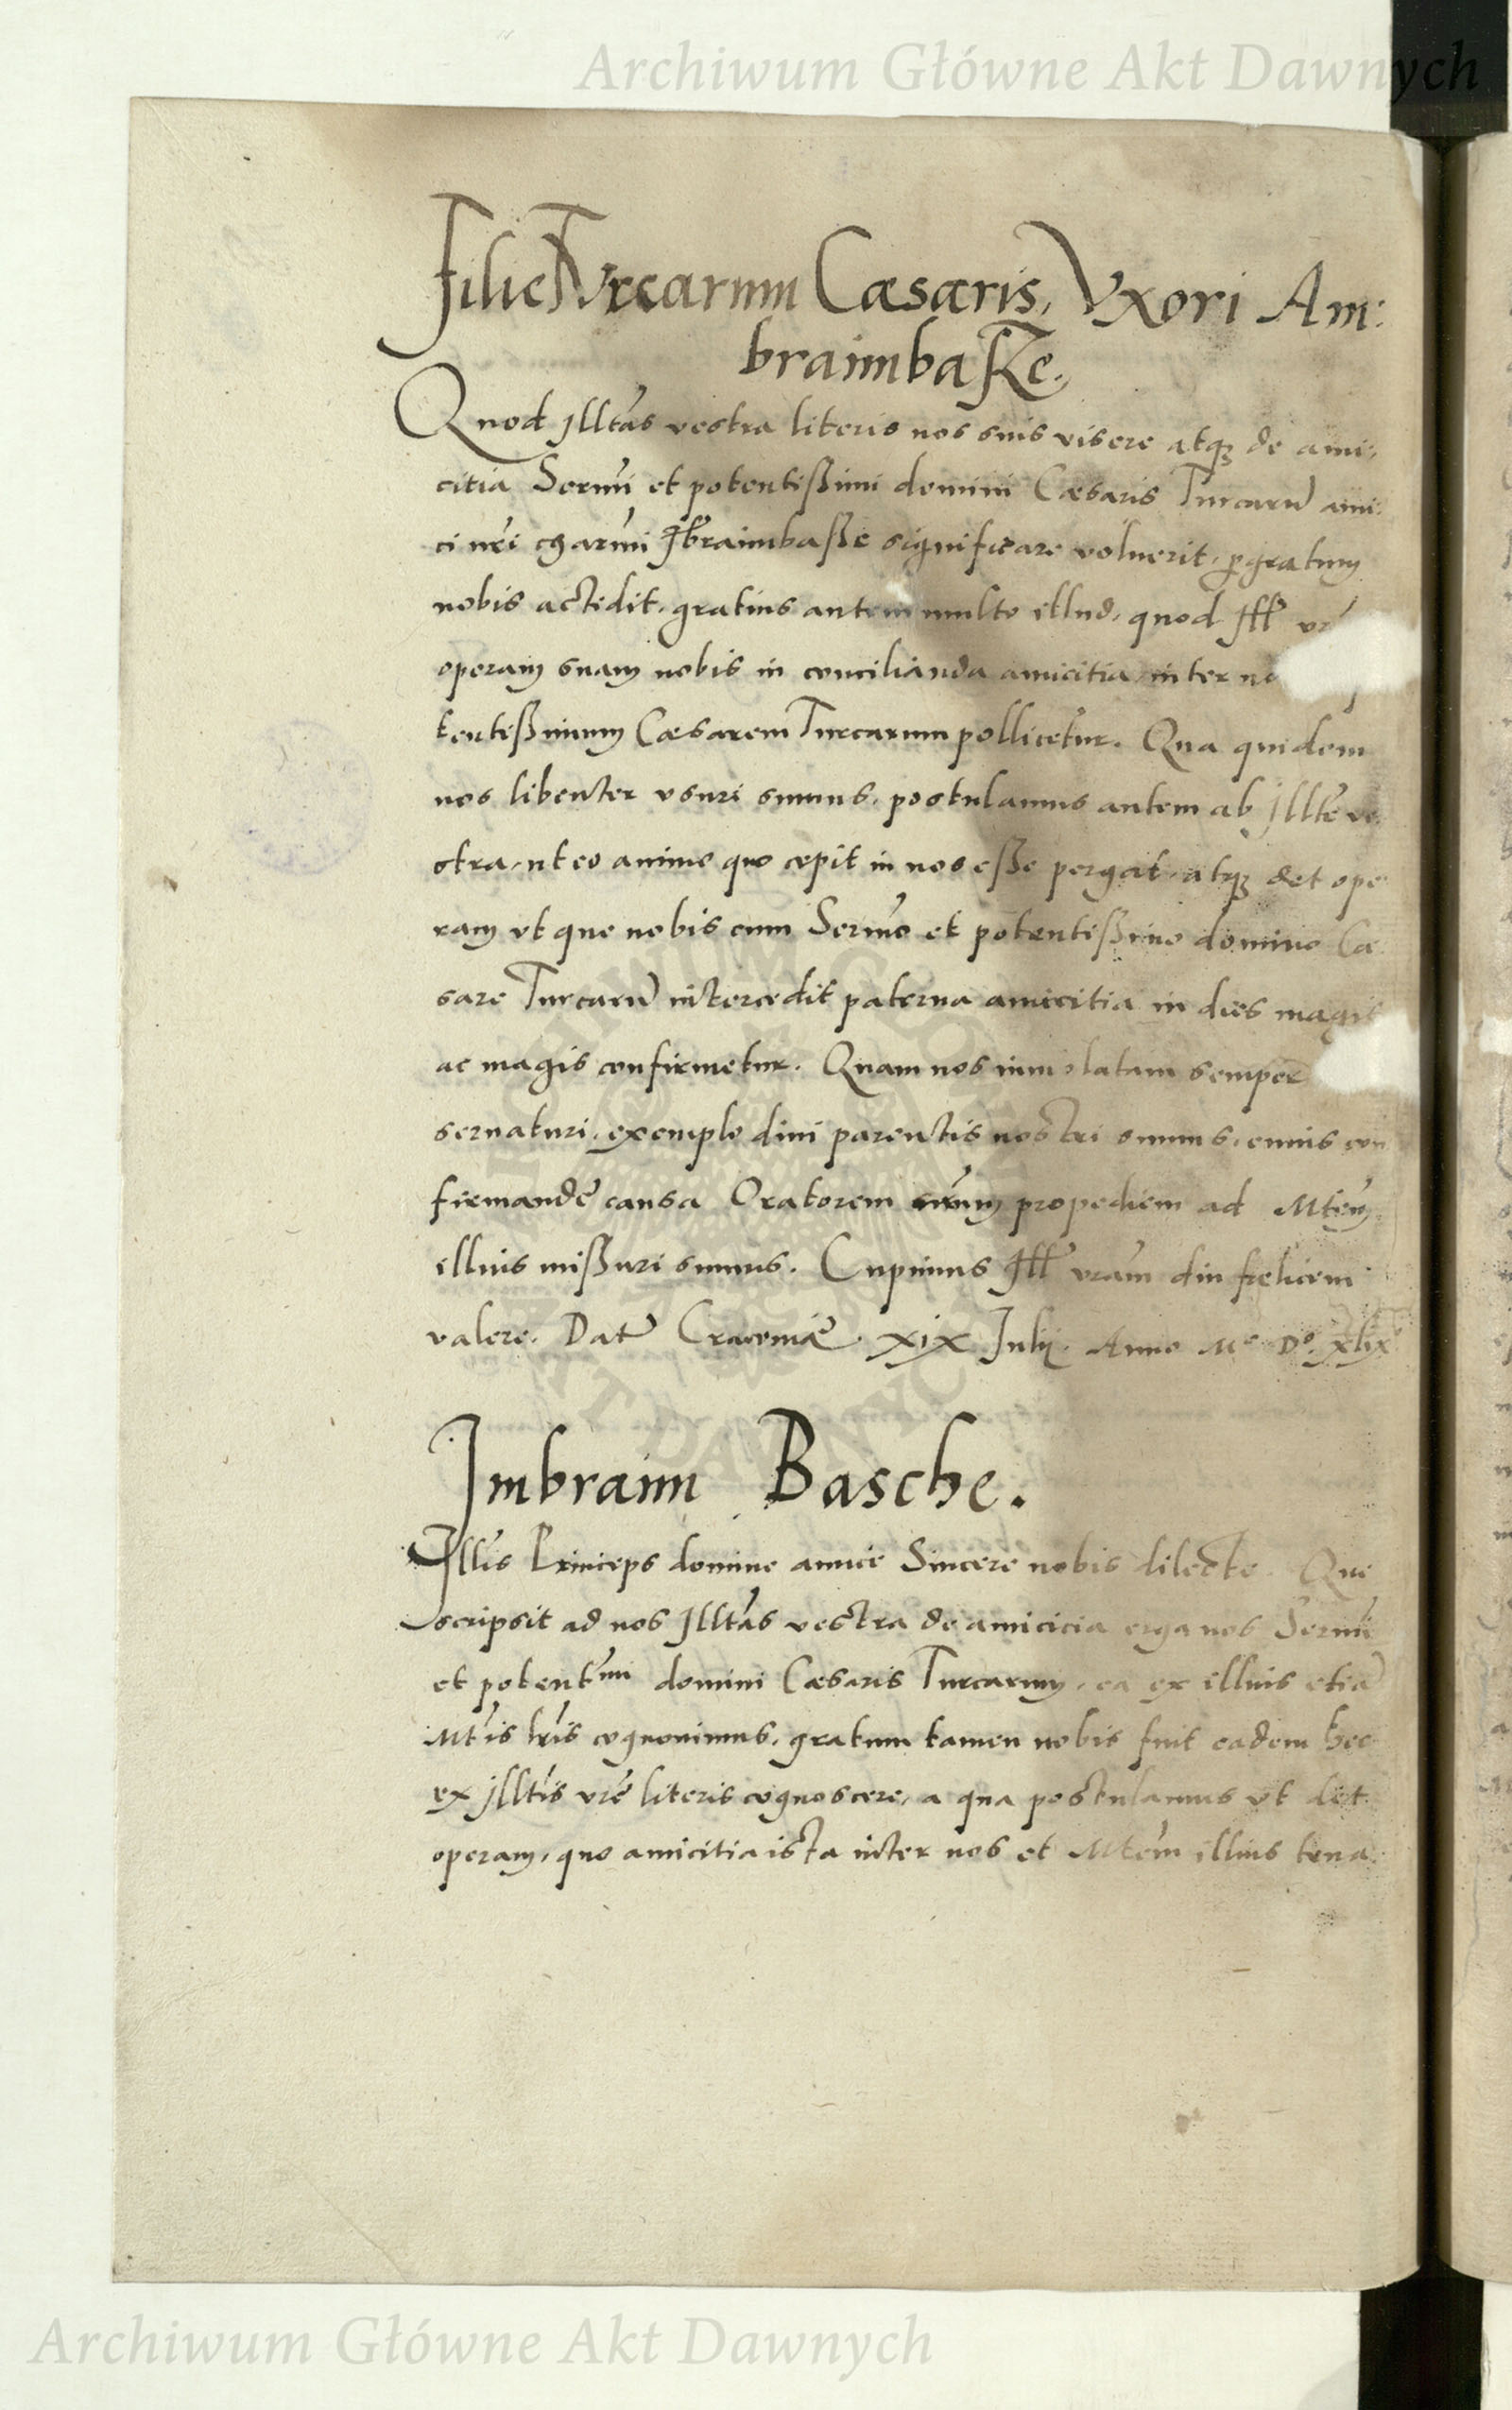 Archiwum Główne Akt Dawnych
Filie Turcarum Cæsaris, Vxori Am:
braimbasse.
Quod Illtas vestra literis nos suis visere atq3 de ami,
citia Sermi et potentißimi domini Cæsaris Turcarū ami:
ci nri charmi Ibraimbaße significare voluerit, pgratum
nobis accidit, gratius autem multo illud, quod Ill
operam suam nobis in concilianda amicitia inter
tentißimum Cæsarem Turcarum pollicetur. Qua quidem
nos libenter vsuri sumus, postulamus autem ab Illte ve
stra, ut eo animo quo cepit in nos eße pergat, atq3 det ope
ram vt que nobis cum Sermo et potentißimo domino Cæ
sare Turcarū intercedit paterna amicitia in dies magis
ac magis confirmetur. Quam nos inuiolatam semper
seruaturi, exemplo diui parentis nostri sumus, cuius con
firmandæ causa Oratorem nrum propediem ad Mtem
illius mißuri sumus. Cupimus Ill vram diu felicem
valere. Dat Cracouiæ. xix Julij. Anno Mo Do. xlix
Imbraim Basche.
Illis Princeps domine amice Sincere nobis dilecte. Que
scripsit ad nos Illtas vestra de amicicia erga nos Sermi
et potentmi domini Cæsaris Turcarum, ea ex illius etiā
Mtis lris cognouimus, gratum tamen nobis fuit eadem hec
ex Illtis vre literis cognoscere, a qua postulamus vt det
operam, quo amicitia ista inter nos et Mtem illius tena
Archiwum Główne Akt Dawnych